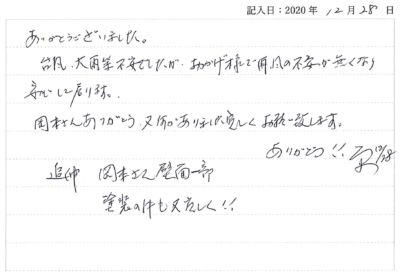 記入日：2020年 12月 28日
ありがとうございました。
台風、大雨等不安でしたが、おかげ様で雨風の不安が無くなり
安心して居ります。
岡本さんありがとう、又何かありましたら宜しくお願い致します。
ありがとう!! 12/28
追伸 岡本さん壁面一部
塗装の件も又宜しく!!